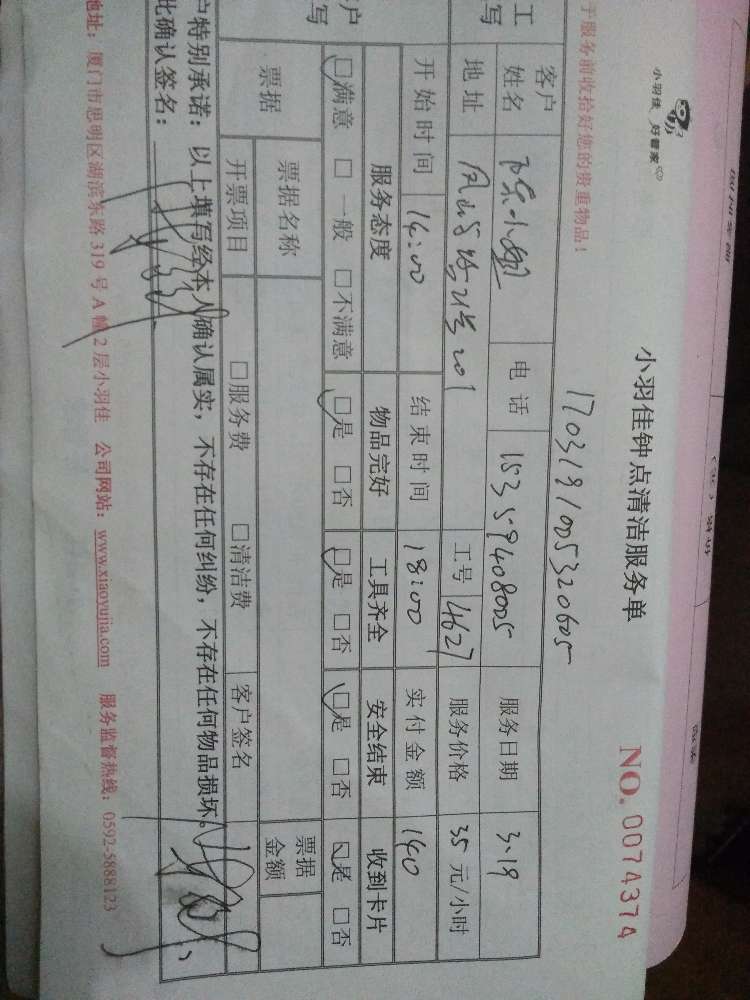 小羽佳 好管家
小羽佳钟点清洁服务单
NO. 0074374
于服务前收拾好您的贵重物品！
1703191005320605
工
写
客户
姓名
小姐
电 话
15359408005
服务日期
3.19
地址
21号201
工号
4627
服务价格
35 元/小时
开始时间
14:00
结束时间
18:00
实付金额
140
户
写
服务态度
物品完好
工具齐全
安全结束
收到卡片
□满意 □一般 □不满意
□是 □否
□是 □否
□是 □否
□是 □否
票据
票据名称
票据
金额
开票项目
□服务费
□清洁费
客户签名
户特别承诺：以上填写经本人确认属实，不存在任何纠纷，不存在任何物品损坏。
此确认签名：
地址：厦门市思明区湖滨东路 319 号 A 幢 2 层小羽佳 公司网站：www.xiaoyujia.com 服务监督热线：0592-5888123